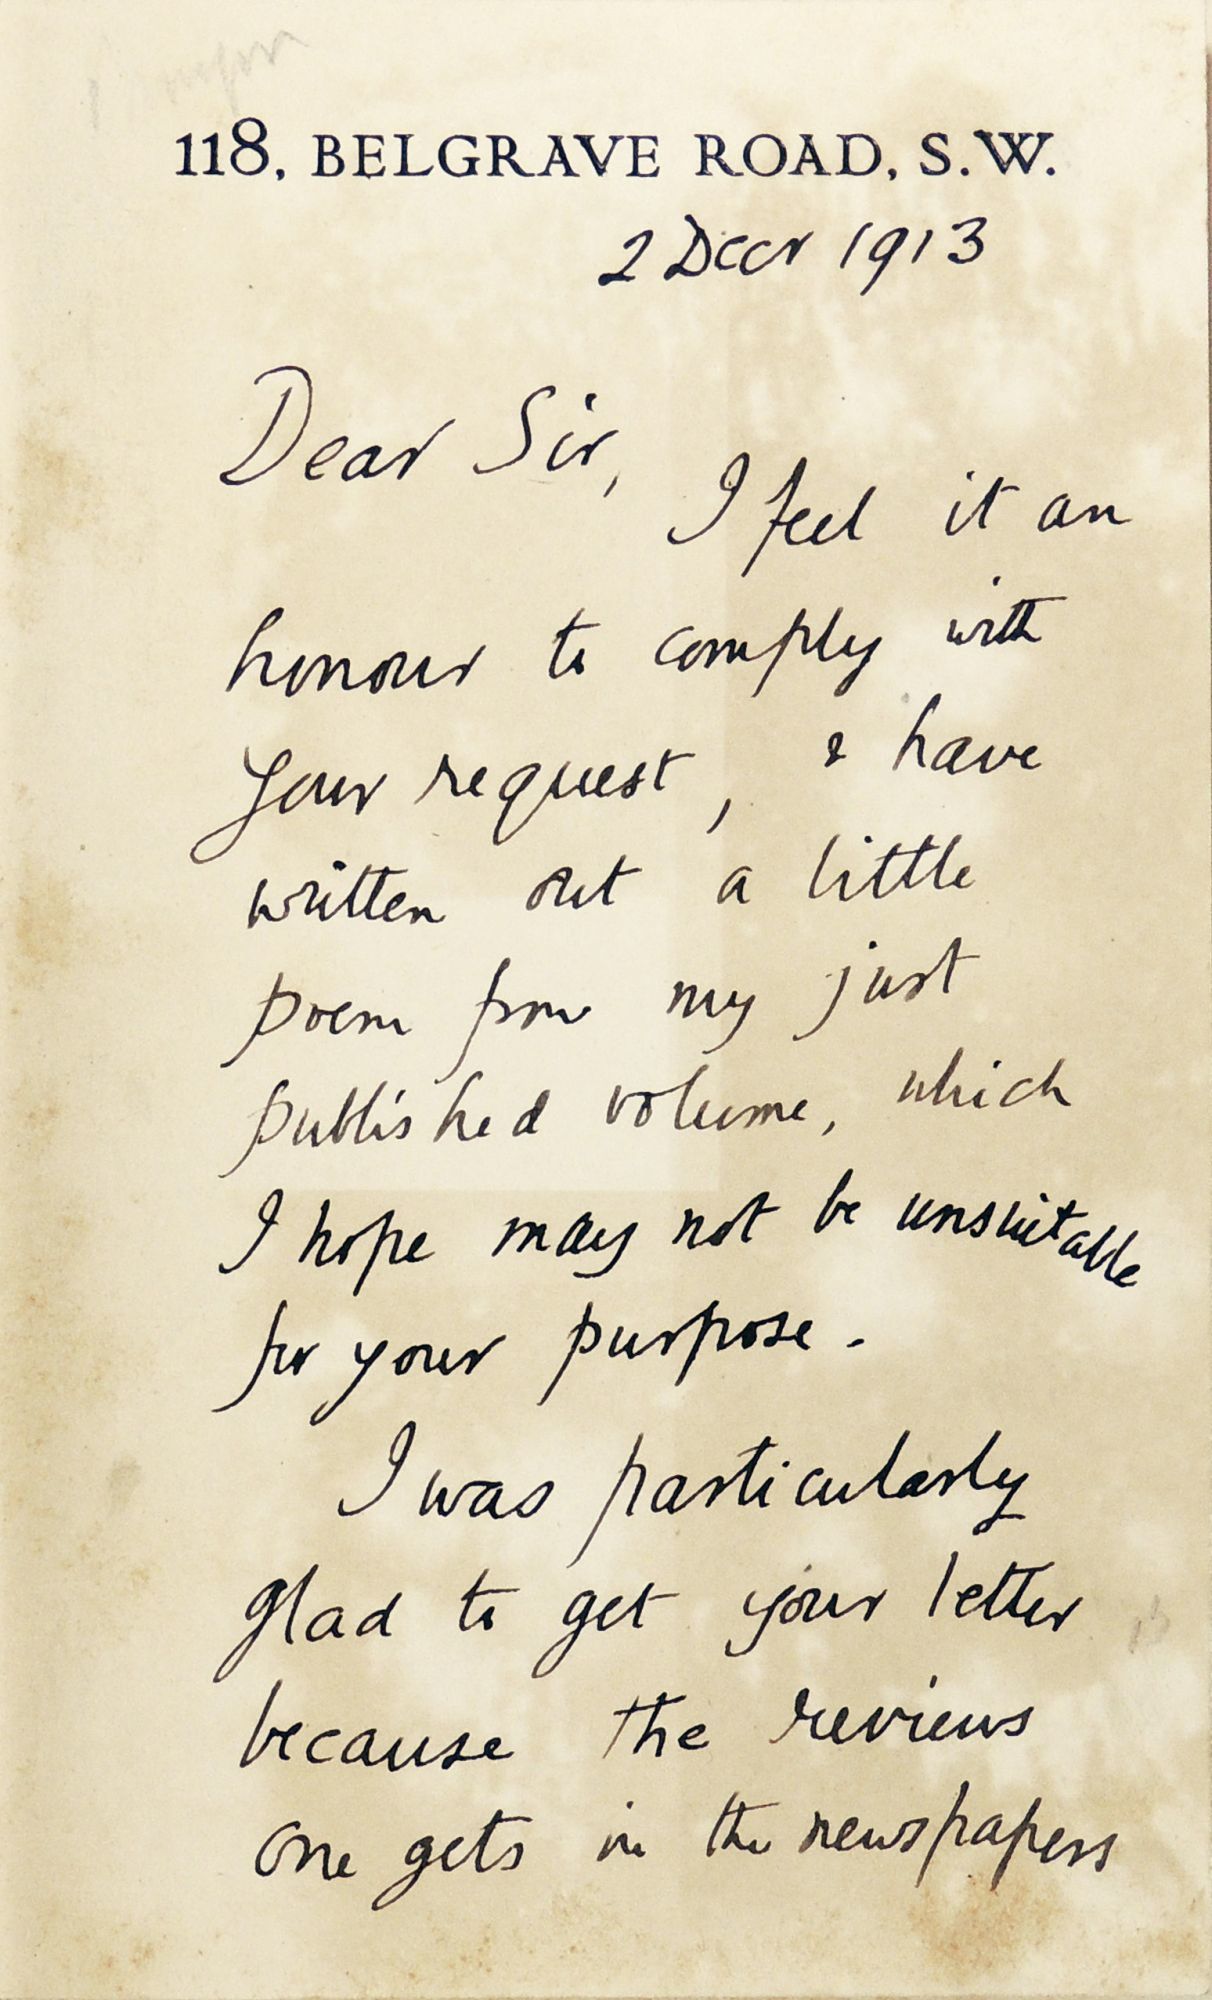 118, BELGRAVE ROAD, S.W.
2 Decr 1913
Dear Sir,
I feel it an
honour to comply with
your request, & have
written out a little
poem from my just
published volume, which
I hope may not be unsuitable
for your purpose.
I was particularly
glad to get your letter
because the reviews
one gets in the newspapers